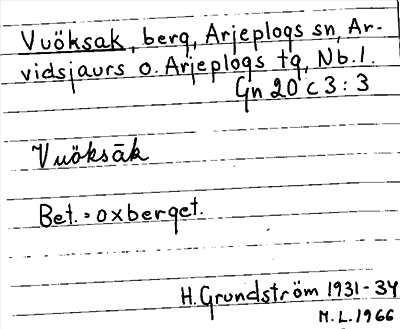 Vuöksak, berg, Arjeplogs sn, Ar-
vidsjaurs o. Arjeplogs tg, Nb. l.
Gn 20 c 3 : 3
Vuöksāk
Bet. = oxberget.
H. Grundström 1931-34
M. L. 1966